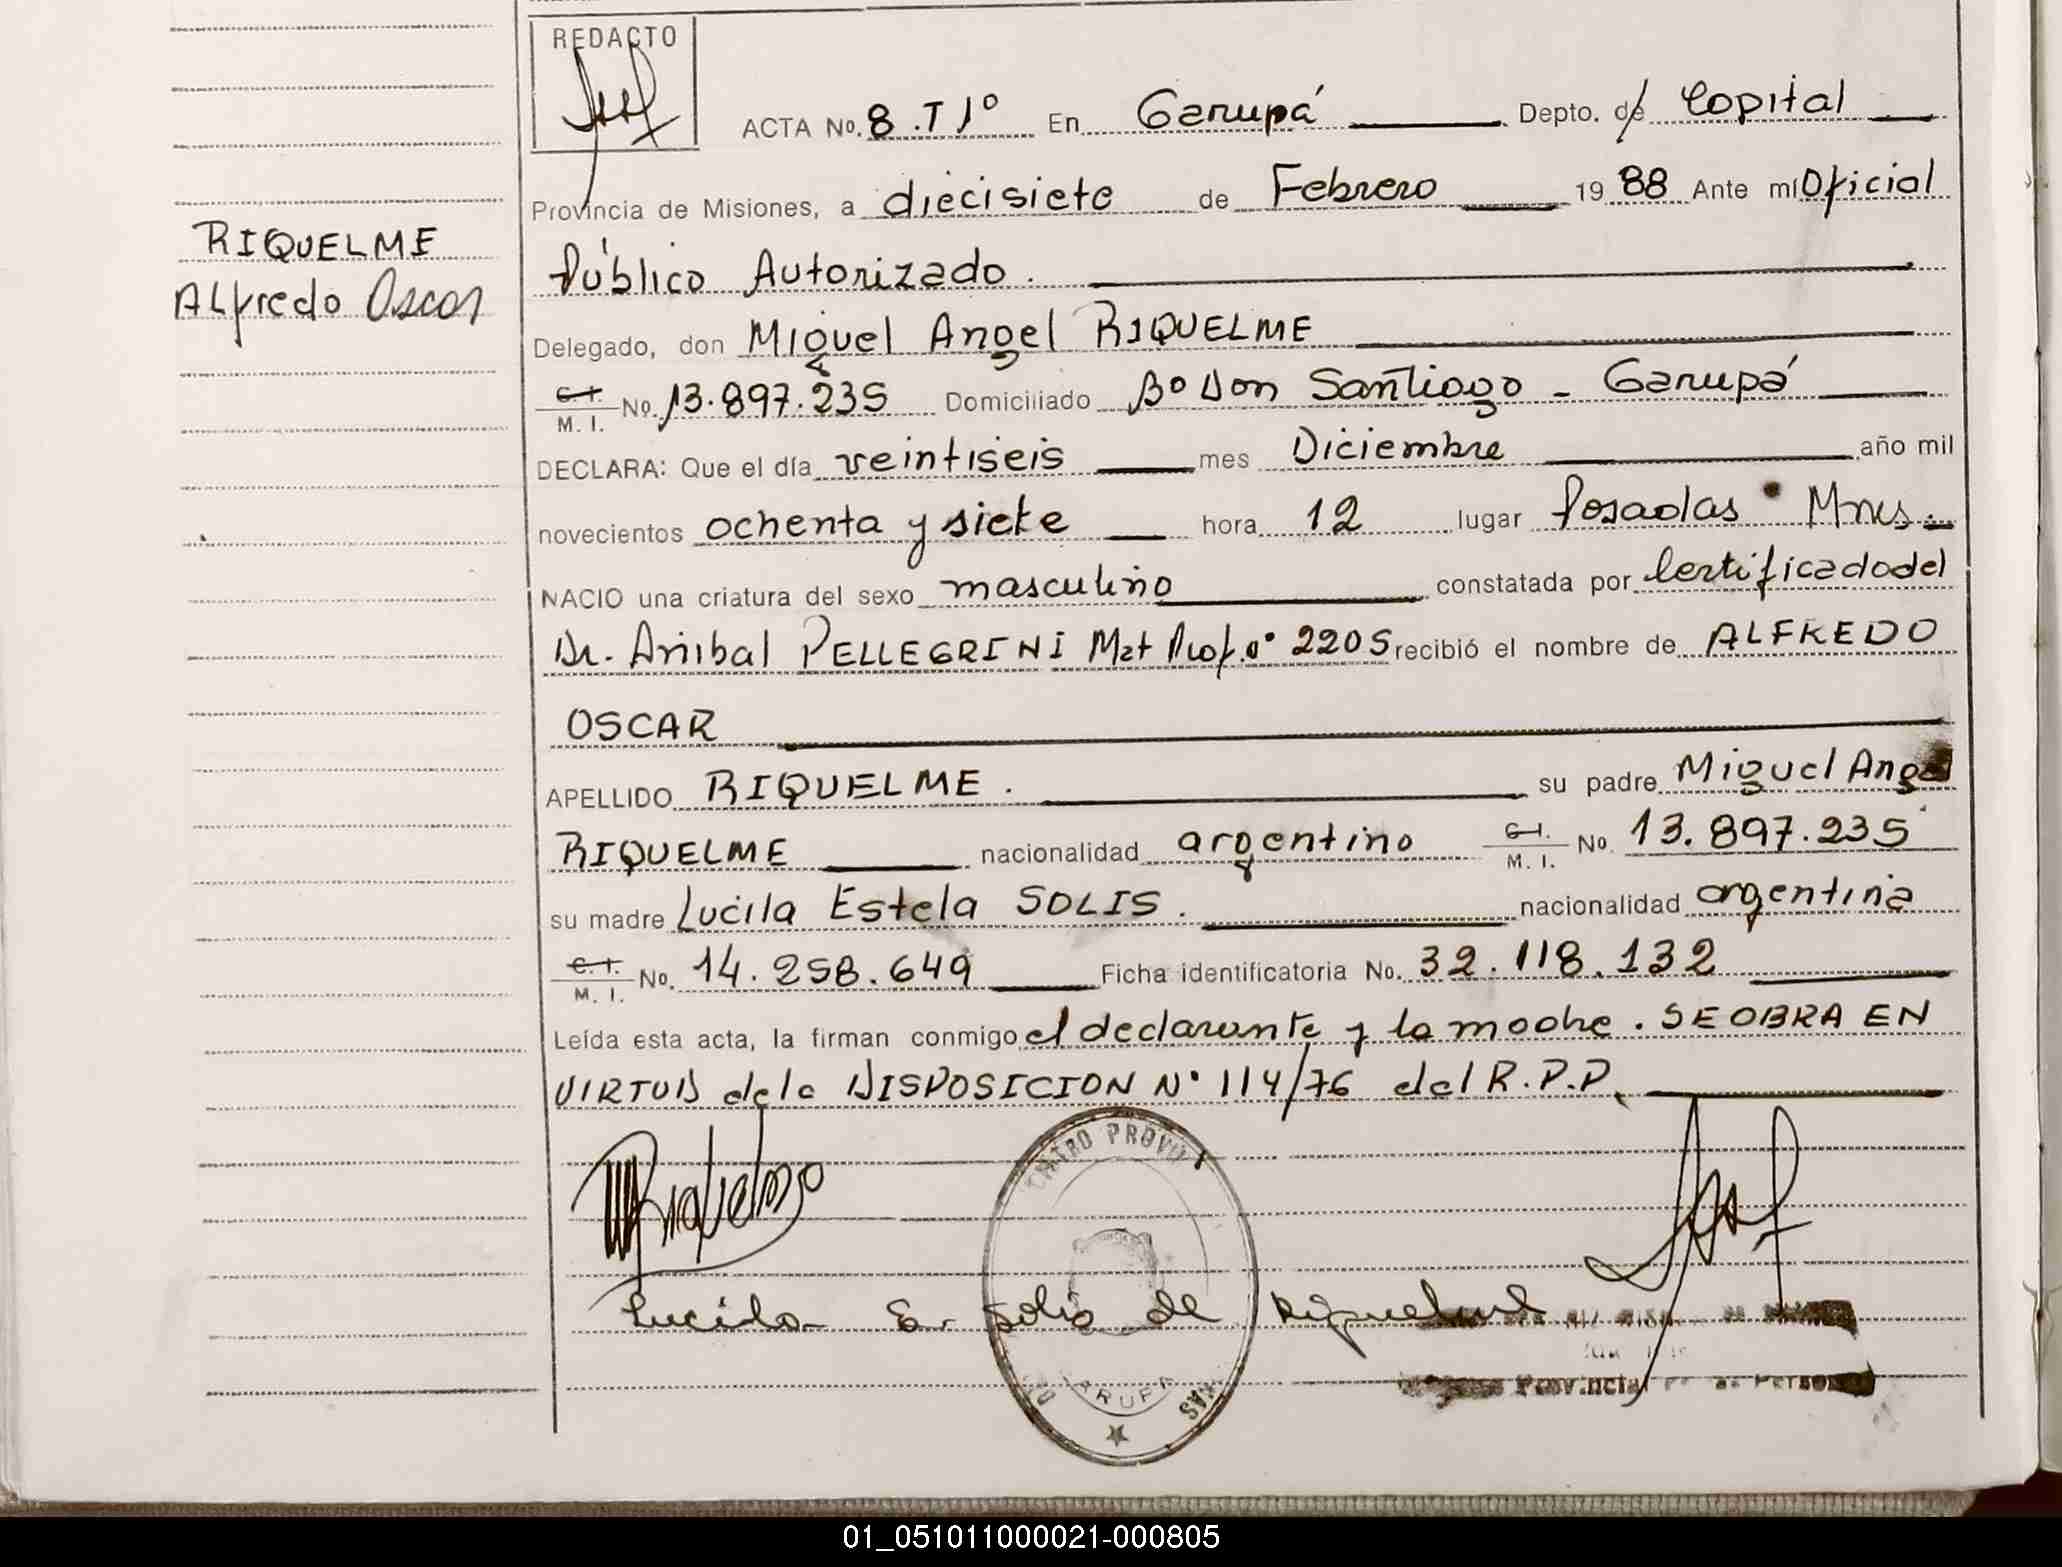 REDACTO
ACTA No. 8.T1º En Garupá Depto. de Capital
Provincia de Misiones, a diecisiete de Febrero 1988 Ante mí Oficial
Público Autorizado.
RIQUELME
Alfredo Oscar
Delegado, don Miguel Angel RIQUELME
C.I. M.I. No. 13.897.235 Domiciliado Bº Don Santiago - Garupá
DECLARA: Que el día veintiseis mes Diciembre año mil
novecientos ochenta y siete hora 12 lugar Posadas Mnes.
NACIO una criatura del sexo masculino constatada por Certificado del
Dr. Anibal PELLEGRINI Mat Prof. nº 2205 recibió el nombre de ALFREDO
OSCAR
APELLIDO RIQUELME. su padre Miguel Angel
RIQUELME nacionalidad argentino C.I. M.I. No. 13.897.235
su madre Lucila Estela SOLIS. nacionalidad argentina
C.I. M.I. No. 14.258.649 Ficha identificatoria No. 32.118.132
Leída esta acta, la firman conmigo el declarante y la madre. SE OBRA EN
VIRTUD de la DISPOSICION Nº 114/76 del R.P.P.
Lucila E. Solis de Riquelme
GARUPA
Provincial
01_051011000021-000805